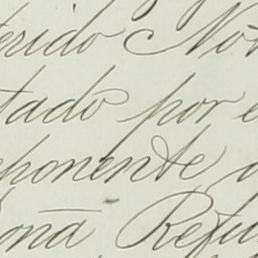 erido Not
tado por e
ponente d
ona Refu